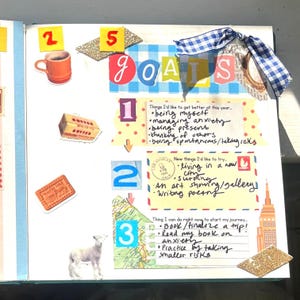 2 5
GOALS
1
Things I'd like to get better at this year...
• being myself
• managing anxiety
• being present
• thinking of others
• being spontaneous/taking risks
2
New things I'd like to try...
• living in a new
city
• surfing
An art showing/gallery!
Writing poetry
3
Thing I can do right now to start my journey...
• Book/finalize a trip!
• Read my book on
anxiety
• Practice by taking
smaller risks